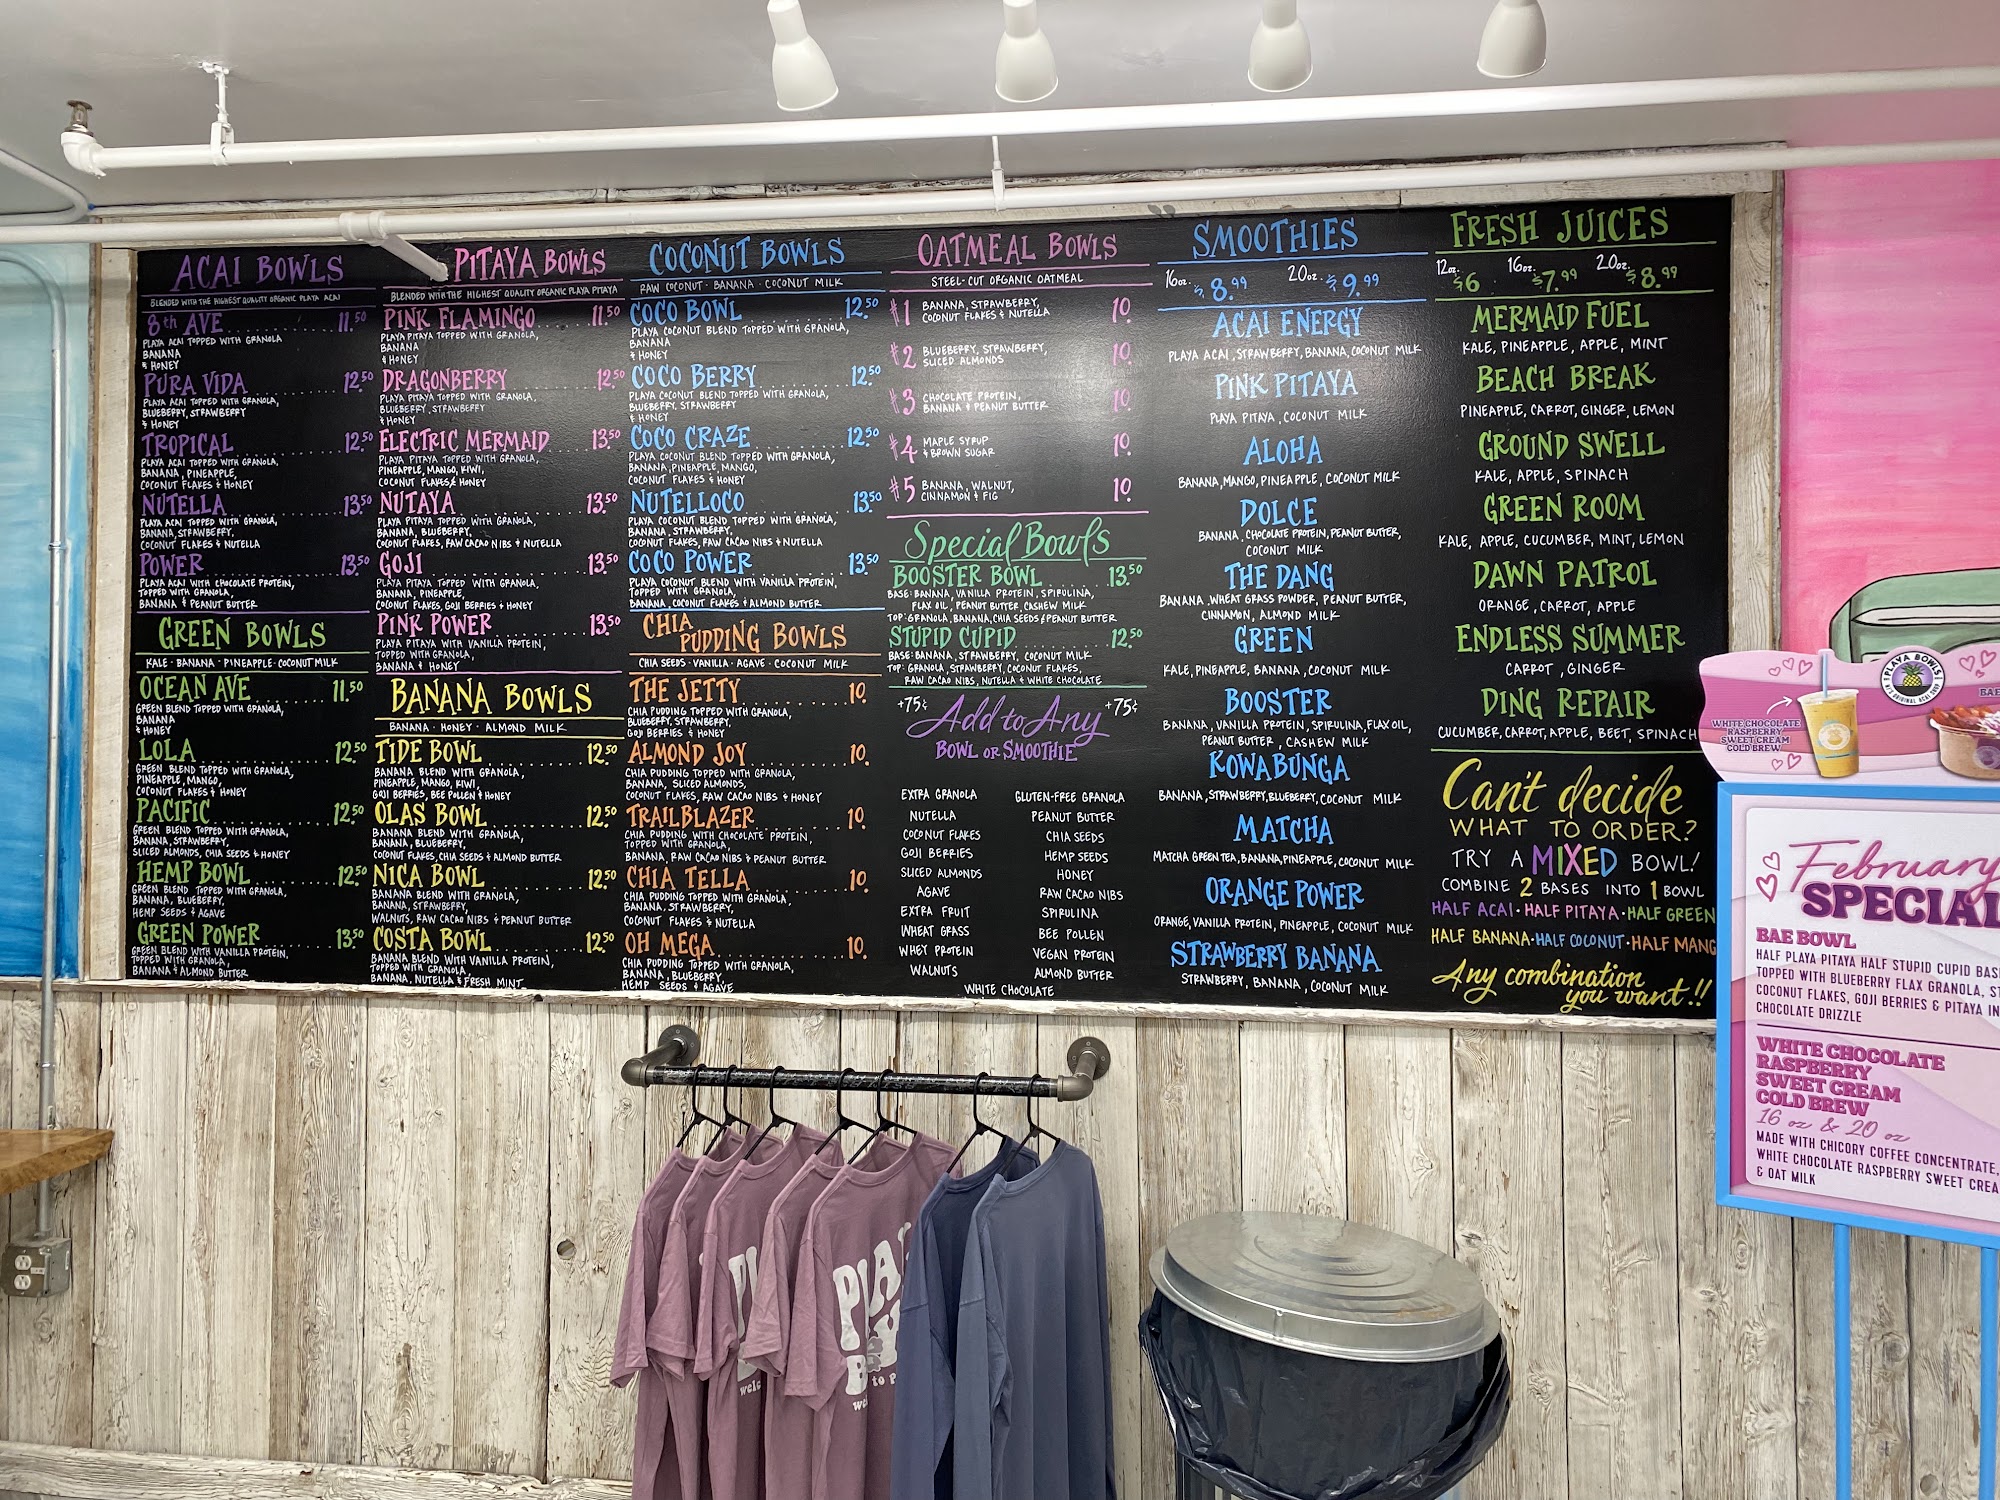 ACAI BOWLS
BLENDED WITH THE HIGHEST QUALITY ORGANIC PLAYA ACAI
8th AVE 11.50
PLAYA ACAI TOPPED WITH GRANOLA
BANANA
& HONEY
PURA VIDA 12.50
PLAYA ACAI TOPPED WITH GRANOLA,
BLUEBERRY, STRAWBERRY
& HONEY
TROPICAL 12.50
PLAYA ACAI TOPPED WITH GRANOLA,
BANANA, PINEAPPLE,
COCONUT FLAKES & HONEY
NUTELLA 13.50
PLAYA ACAI TOPPED WITH GRANOLA,
BANANA, STRAWBERRY,
COCONUT FLAKES & NUTELLA
POWER 13.50
PLAYA ACAI WITH CHOCOLATE PROTEIN,
TOPPED WITH GRANOLA,
BANANA & PEANUT BUTTER
GREEN BOWLS
KALE · BANANA · PINEAPPLE · COCONUT MILK
OCEAN AVE 11.50
GREEN BLEND TOPPED WITH GRANOLA,
BANANA
& HONEY
LOLA 12.50
GREEN BLEND TOPPED WITH GRANOLA,
PINEAPPLE, MANGO,
COCONUT FLAKES & HONEY
PACIFIC 12.50
GREEN BLEND TOPPED WITH GRANOLA,
BANANA, STRAWBERRY,
SLICED ALMONDS, CHIA SEEDS & HONEY
HEMP BOWL 12.50
GREEN BLEND TOPPED WITH GRANOLA,
BANANA, BLUEBERRY,
HEMP SEEDS & AGAVE
GREEN POWER 13.50
GREEN BLEND WITH VANILLA PROTEIN,
TOPPED WITH GRANOLA,
BANANA & ALMOND BUTTER
PITAYA BOWLS
BLENDED WITH THE HIGHEST QUALITY ORGANIC PLAYA PITAYA
PINK FLAMINGO 11.50
PLAYA PITAYA TOPPED WITH GRANOLA,
BANANA
& HONEY
DRAGONBERRY 12.50
PLAYA PITAYA TOPPED WITH GRANOLA,
BLUEBERRY, STRAWBERRY
& HONEY
ELECTRIC MERMAID 13.50
PLAYA PITAYA TOPPED WITH GRANOLA,
PINEAPPLE, MANGO, KIWI,
COCONUT FLAKES & HONEY
NUTAYA 13.50
PLAYA PITAYA TOPPED WITH GRANOLA,
BANANA, BLUEBERRY,
COCONUT FLAKES, RAW CACAO NIBS & NUTELLA
GOJI 13.50
PLAYA PITAYA TOPPED WITH GRANOLA,
BANANA, PINEAPPLE,
COCONUT FLAKES, GOJI BERRIES & HONEY
PINK POWER 13.50
PLAYA PITAYA WITH VANILLA PROTEIN,
TOPPED WITH GRANOLA,
BANANA & HONEY
BANANA BOWLS
BANANA · HONEY · ALMOND MILK
TIDE BOWL 12.50
BANANA BLEND WITH GRANOLA,
PINEAPPLE, MANGO, KIWI,
GOJI BERRIES, BEE POLLEN & HONEY
OLAS BOWL 12.50
BANANA BLEND WITH GRANOLA,
BANANA, BLUEBERRY,
COCONUT FLAKES, CHIA SEEDS & ALMOND BUTTER
NICA BOWL 12.50
BANANA BLEND WITH GRANOLA,
BANANA, STRAWBERRY,
WALNUTS, RAW CACAO NIBS & PEANUT BUTTER
COSTA BOWL 12.50
BANANA BLEND WITH VANILLA PROTEIN,
TOPPED WITH GRANOLA,
BANANA, NUTELLA & FRESH MINT
COCONUT BOWLS
RAW COCONUT · BANANA · COCONUT MILK
COCO BOWL 12.50
PLAYA COCONUT BLEND TOPPED WITH GRANOLA,
BANANA
& HONEY
COCO BERRY 12.50
PLAYA COCONUT BLEND TOPPED WITH GRANOLA,
BLUEBERRY, STRAWBERRY
& HONEY
COCO CRAZE 12.50
PLAYA COCONUT BLEND TOPPED WITH GRANOLA,
BANANA, PINEAPPLE, MANGO,
COCONUT FLAKES & HONEY
NUTELLOCO 13.50
PLAYA COCONUT BLEND TOPPED WITH GRANOLA,
BANANA, STRAWBERRY,
COCONUT FLAKES, RAW CACAO NIBS & NUTELLA
COCO POWER 13.50
PLAYA COCONUT BLEND WITH VANILLA PROTEIN,
TOPPED WITH GRANOLA,
BANANA, COCONUT FLAKES & ALMOND BUTTER
CHIA PUDDING BOWLS
CHIA SEEDS · VANILLA · AGAVE · COCONUT MILK
THE JETTY 10.
CHIA PUDDING TOPPED WITH GRANOLA,
BLUEBERRY, STRAWBERRY,
GOJI BERRIES & HONEY
ALMOND JOY 10.
CHIA PUDDING TOPPED WITH GRANOLA,
BANANA, SLICED ALMONDS,
COCONUT FLAKES, RAW CACAO NIBS & HONEY
TRAILBLAZER 10.
CHIA PUDDING WITH CHOCOLATE PROTEIN,
TOPPED WITH GRANOLA,
BANANA, RAW CACAO NIBS & PEANUT BUTTER
CHIA TELLA 10.
CHIA PUDDING TOPPED WITH GRANOLA,
BANANA, STRAWBERRY,
COCONUT FLAKES & NUTELLA
OH MEGA 10.
CHIA PUDDING TOPPED WITH GRANOLA,
BANANA, BLUEBERRY,
HEMP SEEDS & AGAVE
OATMEAL BOWLS
STEEL-CUT ORGANIC OATMEAL
#1 BANANA, STRAWBERRY, 10.
COCONUT FLAKES & NUTELLA
#2 BLUEBERRY, STRAWBERRY, 10.
SLICED ALMONDS
#3 CHOCOLATE PROTEIN, 10.
BANANA & PEANUT BUTTER
#4 MAPLE SYRUP 10.
& BROWN SUGAR
#5 BANANA, WALNUT, 10.
CINNAMON & FIG
Special Bowls
BOOSTER BOWL 13.50
BASE: BANANA, VANILLA PROTEIN, SPIRULINA,
FLAX OIL, PEANUT BUTTER, CASHEW MILK
TOP: GRANOLA, BANANA, CHIA SEEDS & PEANUT BUTTER
STUPID CUPID 12.50
BASE: BANANA, STRAWBERRY, COCONUT MILK
TOP: GRANOLA, STRAWBERRY, COCONUT FLAKES,
RAW CACAO NIBS, NUTELLA & WHITE CHOCOLATE
+75¢ Add to Any +75¢
BOWL OR SMOOTHIE
EXTRA GRANOLA
NUTELLA
COCONUT FLAKES
GOJI BERRIES
SLICED ALMONDS
AGAVE
EXTRA FRUIT
WHEAT GRASS
WHEY PROTEIN
WALNUTS
GLUTEN-FREE GRANOLA
PEANUT BUTTER
CHIA SEEDS
HEMP SEEDS
HONEY
RAW CACAO NIBS
SPIRULINA
BEE POLLEN
VEGAN PROTEIN
ALMOND BUTTER
WHITE CHOCOLATE
SMOOTHIES
16oz. $8.99 20oz. $9.99
ACAI ENERGY
PLAYA ACAI, STRAWBERRY, BANANA, COCONUT MILK
PINK PITAYA
PLAYA PITAYA, COCONUT MILK
ALOHA
BANANA, MANGO, PINEAPPLE, COCONUT MILK
DOLCE
BANANA, CHOCOLATE PROTEIN, PEANUT BUTTER,
COCONUT MILK
THE DANG
BANANA, WHEAT GRASS POWDER, PEANUT BUTTER,
CINNAMON, ALMOND MILK
GREEN
KALE, PINEAPPLE, BANANA, COCONUT MILK
BOOSTER
BANANA, VANILLA PROTEIN, SPIRULINA, FLAX OIL,
PEANUT BUTTER, CASHEW MILK
KOWABUNGA
BANANA, STRAWBERRY, BLUEBERRY, COCONUT MILK
MATCHA
MATCHA GREEN TEA, BANANA, PINEAPPLE, COCONUT MILK
ORANGE POWER
ORANGE, VANILLA PROTEIN, PINEAPPLE, COCONUT MILK
STRAWBERRY BANANA
STRAWBERRY, BANANA, COCONUT MILK
FRESH JUICES
12oz. $6 16oz. $7.99 20oz. $8.99
MERMAID FUEL
KALE, PINEAPPLE, APPLE, MINT
BEACH BREAK
PINEAPPLE, CARROT, GINGER, LEMON
GROUND SWELL
KALE, APPLE, SPINACH
GREEN ROOM
KALE, APPLE, CUCUMBER, MINT, LEMON
DAWN PATROL
ORANGE, CARROT, APPLE
ENDLESS SUMMER
CARROT, GINGER
DING REPAIR
CUCUMBER, CARROT, APPLE, BEET, SPINACH
Can't decide
WHAT TO ORDER?
TRY A MIXED BOWL!
COMBINE 2 BASES INTO 1 BOWL
HALF ACAI · HALF PITAYA · HALF GREEN
HALF BANANA · HALF COCONUT · HALF MANG
Any combination
you want!!
PLAYA BOWLS
WHITE CHOCOLATE
RASPBERRY
SWEET CREAM
COLD BREW
BAE
February
SPECIAL
BAE BOWL
HALF PLAYA PITAYA HALF STUPID CUPID BAS
TOPPED WITH BLUEBERRY FLAX GRANOLA, ST
COCONUT FLAKES, GOJI BERRIES & PITAYA IN
CHOCOLATE DRIZZLE
WHITE CHOCOLATE
RASPBERRY
SWEET CREAM
COLD BREW
16 oz & 20 oz
MADE WITH CHICORY COFFEE CONCENTRATE,
WHITE CHOCOLATE RASPBERRY SWEET CREA
& OAT MILK